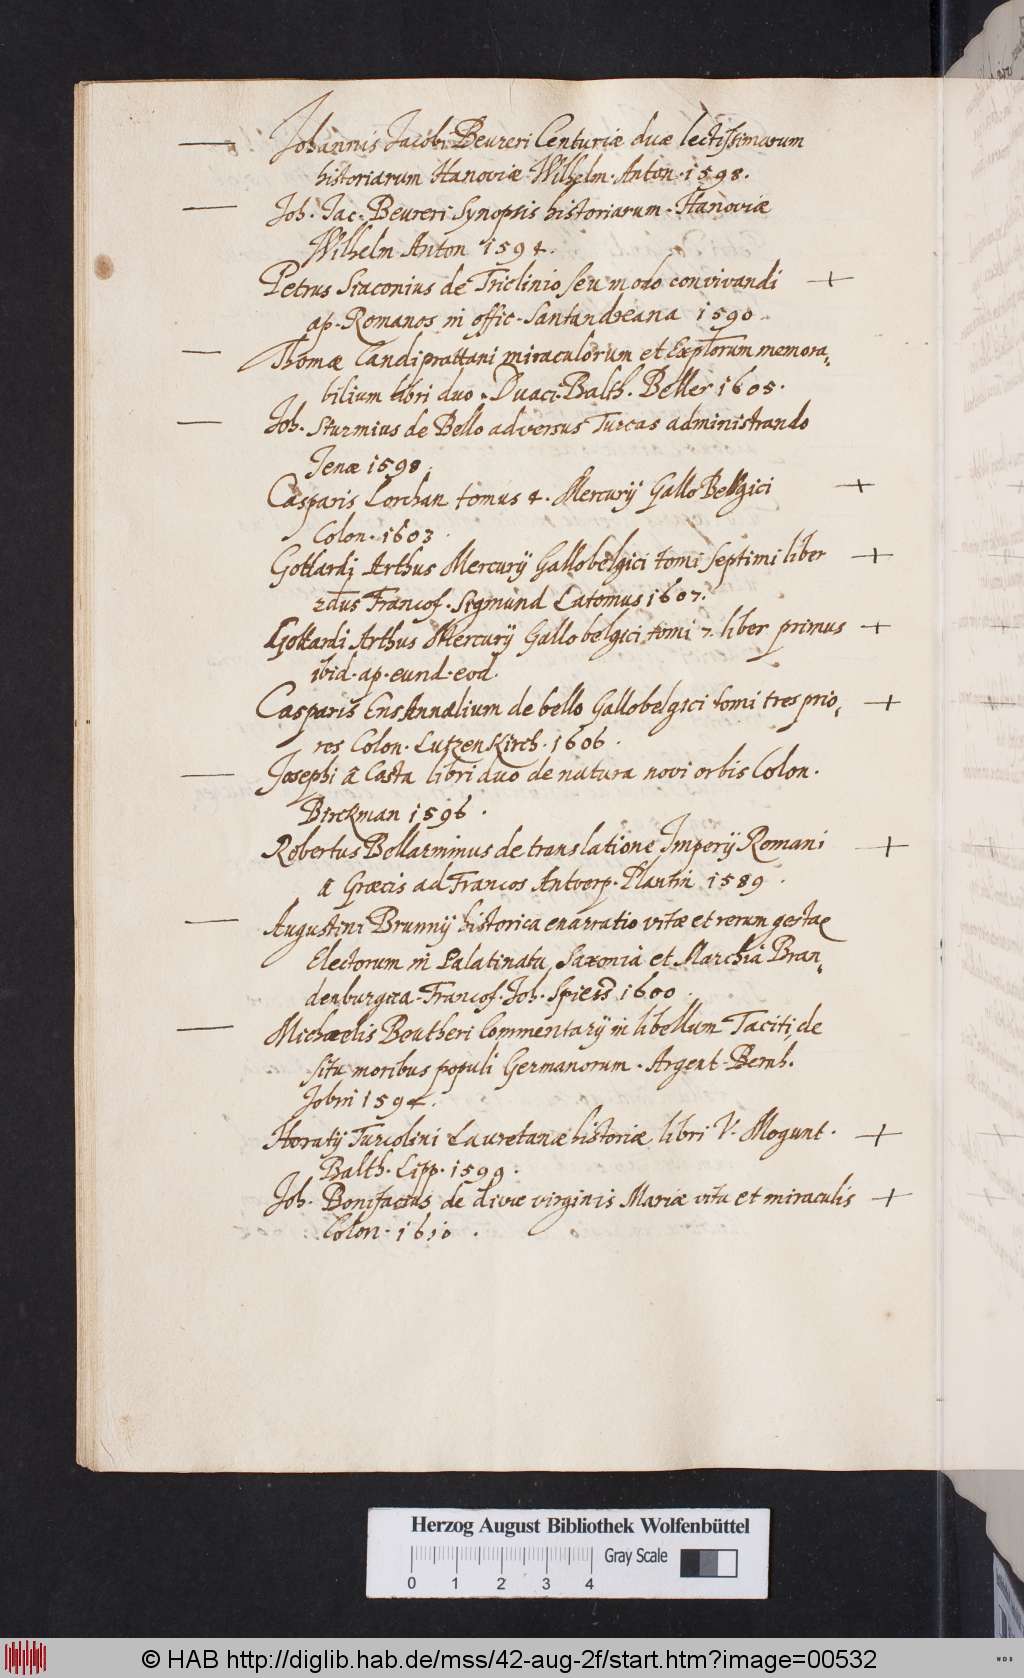 — Johannis Jacobi Beureri Centuriæ duæ lectissimarum
historiarum Hanoviæ Wilhelm. Anton. 1598.
— Joh. Jac. Beureri Synopsis historiarum. Hanoviæ
Wilhelm Anton 1594.
Petrus Siaconius de Triclinio seu modo convivandi +
ap. Romanos in offic. Santandreana 1590
— Thomæ Candiprattani miraculorum et Exeplorum memora-
bilium libri duo. Duaci. Balth. Beller 1605.
— Joh. Sturmius de Bello adversus Turcas administrando
Jenæ 1598.
Casparis Lorchan tomus 4. Mercurij Gallo Belgici +
Colon. 1603.
Gottardi Arthus Mercurij Gallobelgici tomi septimi liber +
2dus Francof. Sigmund Latomus 1607.
Gottardi Arthus Mercurij Gallobelgici tomi 7. liber primus +
ibid. ap. eund. eod.
Casparis Ens Annalium de bello Gallobelgici tomi tres prio- +
res Colon. Lutzenkirch. 1606.
— Josephi à Costa libri duo de natura novi orbis Colon.
Birckman 1596.
Robertus Bellarminus de translatione Imperij Romani +
à Græcis ad Francos Antverp. Plantin 1589.
— Augustini Brunnij historica enarratio vitæ et rerum gestaȩ
Electorum in Palatinatu, Saxonia et Marchia Bran-
denburgica. Francof. Joh. Spiess 1600.
— Michaelis Beutheri Commentarij in libellum Taciti, de
situ moribus populi Germanorum. Argent. Bernh.
Jobin 1594.
Horatij Turcolini Lauretanæ historiæ libri V. Mogunt. +
Balth. Lipp. 1599.
Joh. Bonifacius de divæ virginis Mariæ vita et miraculis +
Colon. 1610.
Herzog August Bibliothek Wolfenbüttel
Gray Scale
0 1 2 3 4
© HAB http://diglib.hab.de/mss/42-aug-2f/start.htm?image=00532